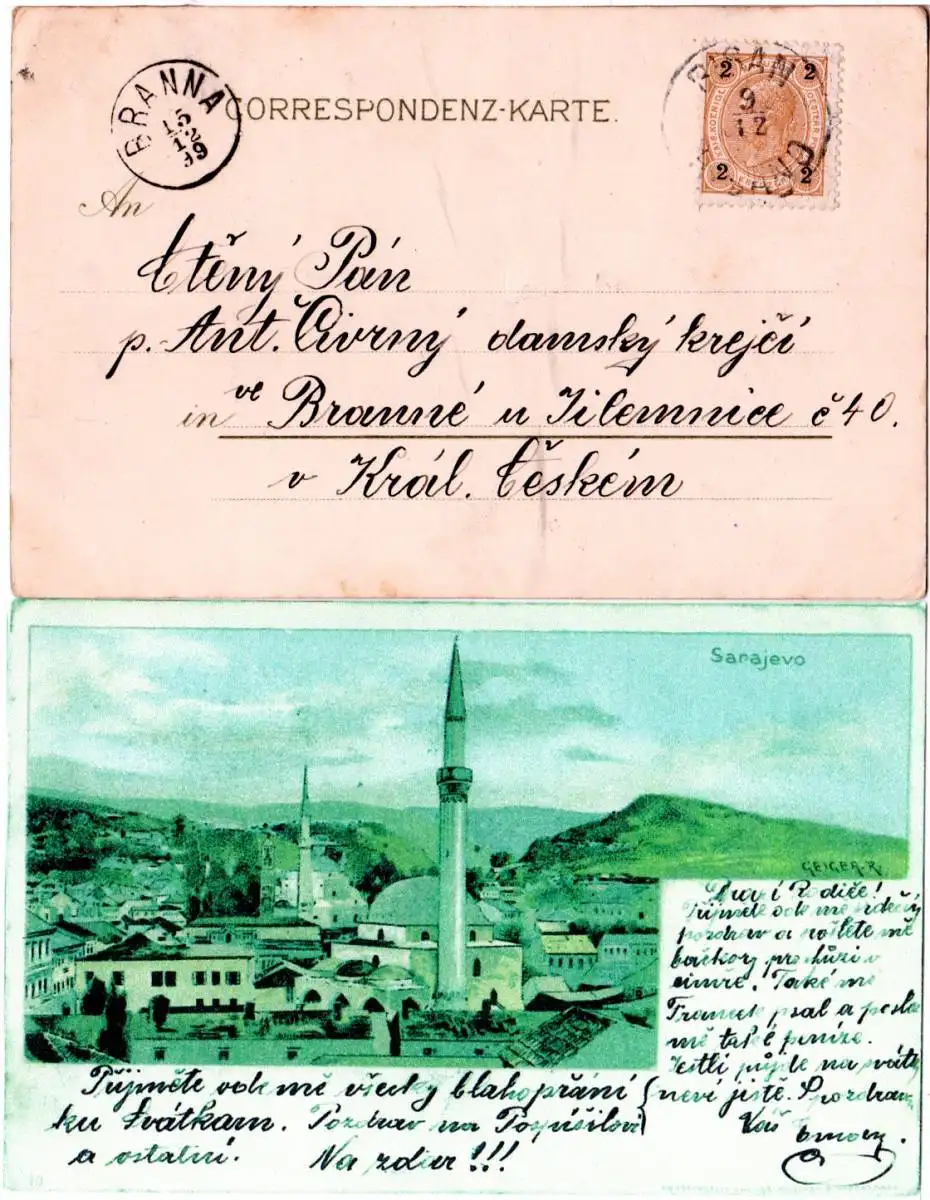 BRANNA
12
99
CORRESPONDENZ-KARTE.
2 2
9
12
2 2
An
Ctěný Pán
p. Ant. Čivrný damský krejčí
in ve Branné u Jilemnice č 40.
v Král. Českém
Sarajevo
GEIGER-R.
Drazí Rodiče!
Přijměte ode mě srdečný
pozdrav a pošlete mě
bačkory pro chůzi v
cimře. Také mě
Franck psal a
mě také peníze.
Jestli půjde na svátky
není jistě. S pozdravem
Váš
Půjměte ode mě všecky blahopřání
ku Svátkam. Pozdrav na Pospíšilovi
a ostatní. Na zdar!!!